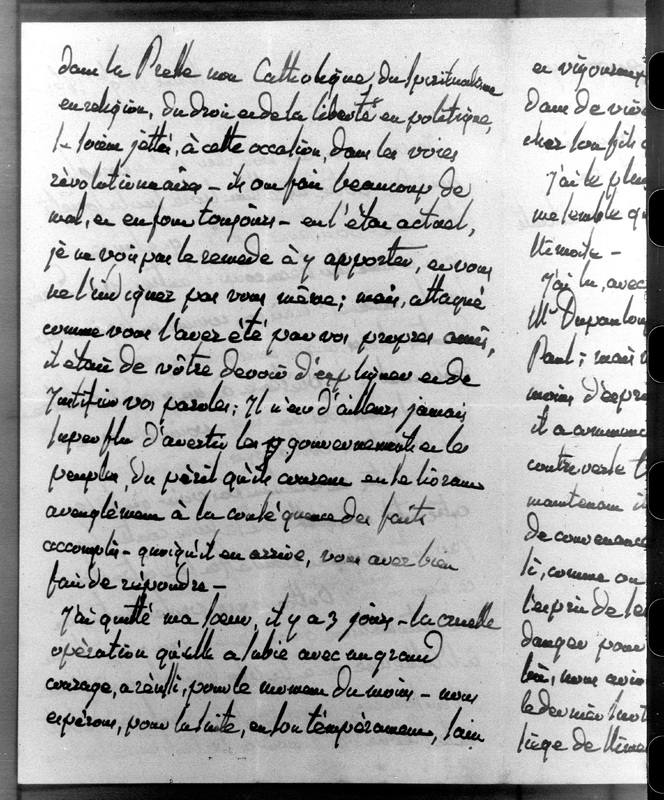 dans la Presse non Catholique, du spiritualisme
en religion, du droit et de la liberté en politique,
se soient jettés, à cette occasion, dans les voies
révolutionnaires – ils ont fait beaucoup de
mal, et en font toujours – en l'état actuel,
je ne vois pas le remède à y apporter, et vous
ne l'indiquez pas vous même; mais, attaqué
comme vous l'avez été par vos propres amis,
il était de vôtre devoir d'expliquer et de
justifier vos paroles; Il n'est d'ailleurs jamais
superflu d'avertir les gouvernements et les
peuples du péril qu'ils courent en se livrant
aveuglément à la conséquence des faits
accomplis – quoiqu'il en arrive, vous avez bien
fait de répondre –
J'ai quitté ma soeur, il y a 3 jours – la cruelle
opération qu'elle a subie avec un grand
courage, a réussi, pour le moment du moins – nous
espérons, pour la suite, en son tempérament, sain
en vigoureux
Dans de
cher son fils
J'ai le plus
me semble qu
J'ai lu, avec
Mr Dupanlou
Paul; mais
moins d'espr
il a commenc
controverse
maintenant il
de convenance
si, comme on
l'esprit de
danger pour
nous avio
le dernier
siège de